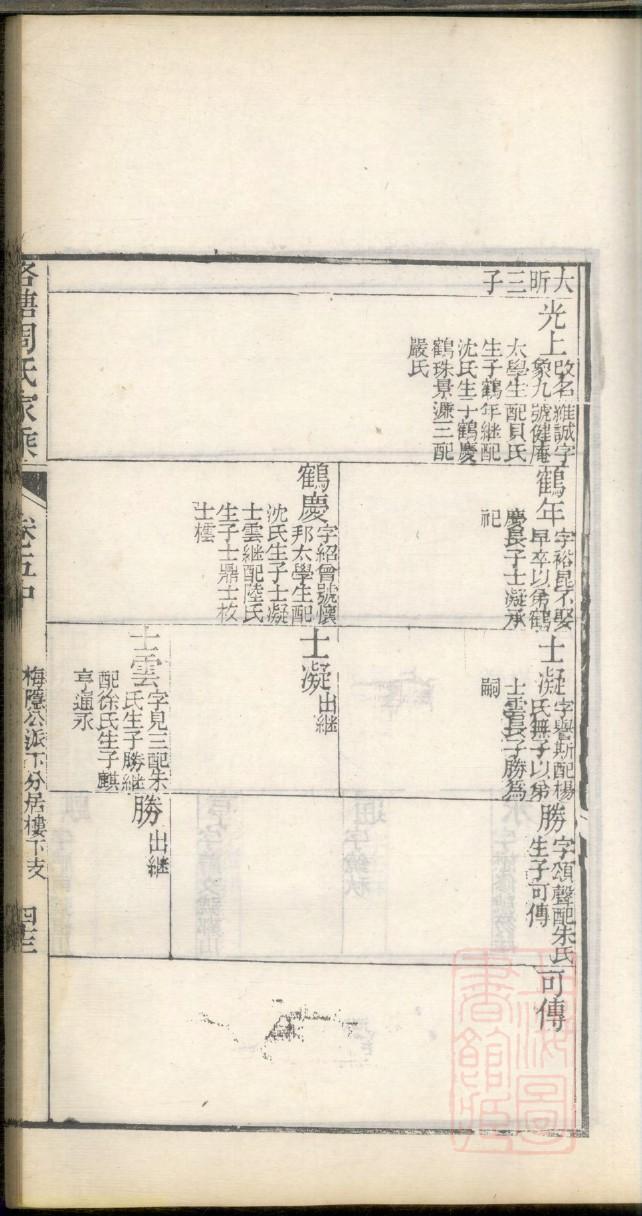 大昕三子
光上
改名維誠字
象九號健庵
太學生配貝氏
生子鶴年繼配
沈氏生子鶴慶
鶴珠景濂三配
嚴氏
鶴年
字裕昆不娶
早卒以弟鶴
慶長子士凝承
祀
鶴慶
字紹曾號懷
邦太學生配
沈氏生子士凝
士雲繼配陸氏
生子士鼎士枚
士樗
士凝
字譽斯配楊
氏無子以弟
士雲長子勝為
嗣
士凝
出繼
士雲
字見三配朱
氏生子勝繼
配徐氏生子麒
亨通永
勝
字頌聲配朱氏
生子可傳
勝
出繼
可傳
洛塘周氏家乘
卷五中
梅隱公派下分居樓下支
四十三
上海圖
書館藏